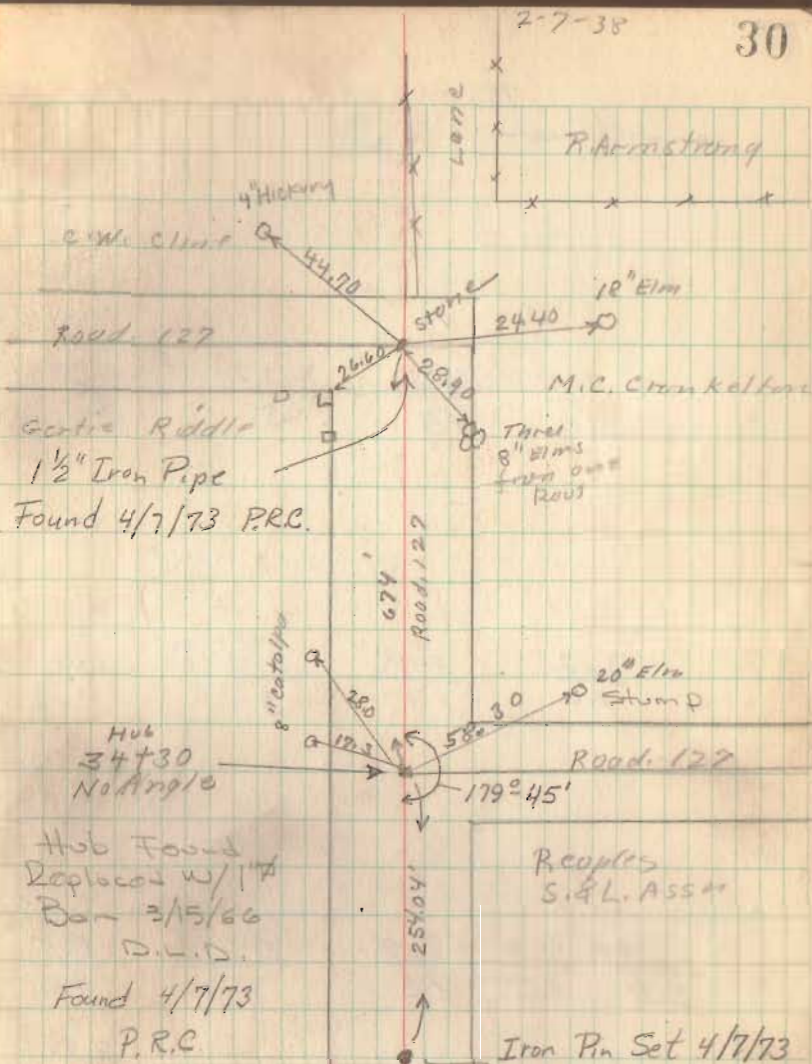 2-7-38
30
Lane
R. Armstrong
4" Hickory
C.W. Cline
44.70
stone
18" Elm
24.40
Road. 127
26.60
28.90
M.C. Crankelton
Gertie Riddle
Three
8" Elms
from one
Root
1 1/2" Iron Pipe
Found 4/7/73 P.R.C.
674'
Road. 127
8" Catalpa
28.0
17.3
20" Elm
Stump
58.30
Hub
34+30
No Angle
Road. 127
179° 45'
Hub Found
Replaced W/ 1"⌀
Bar 3/15/66
D.L.D.
Peoples
S. & L. Assn
254.04'
Found 4/7/73
P.R.C.
Iron Pin Set 4/7/73